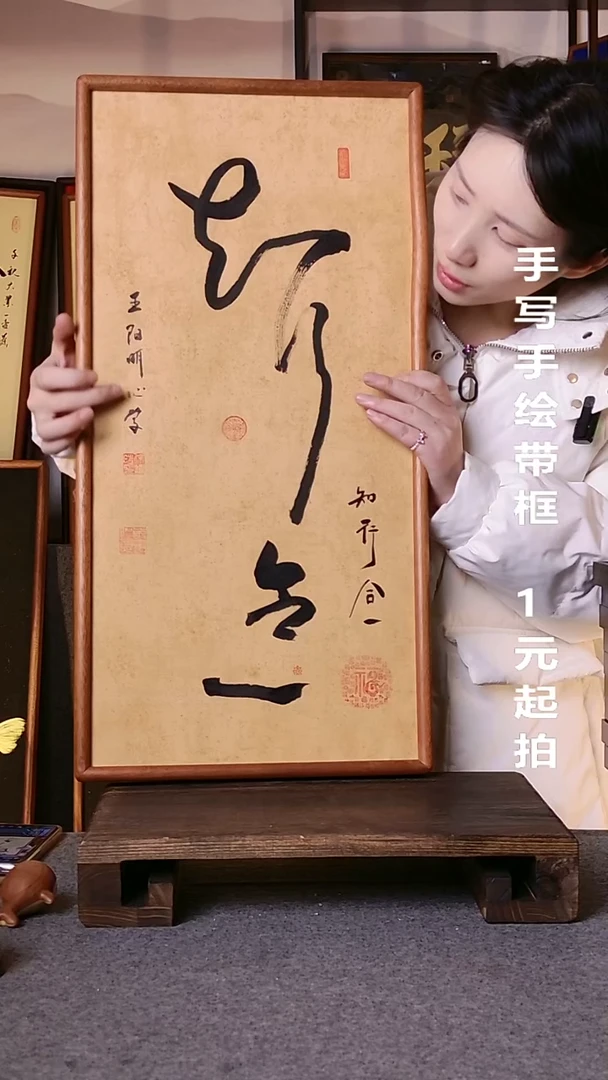 知行合一
知行合一
王阳明心学
手写手绘带框 1元起拍